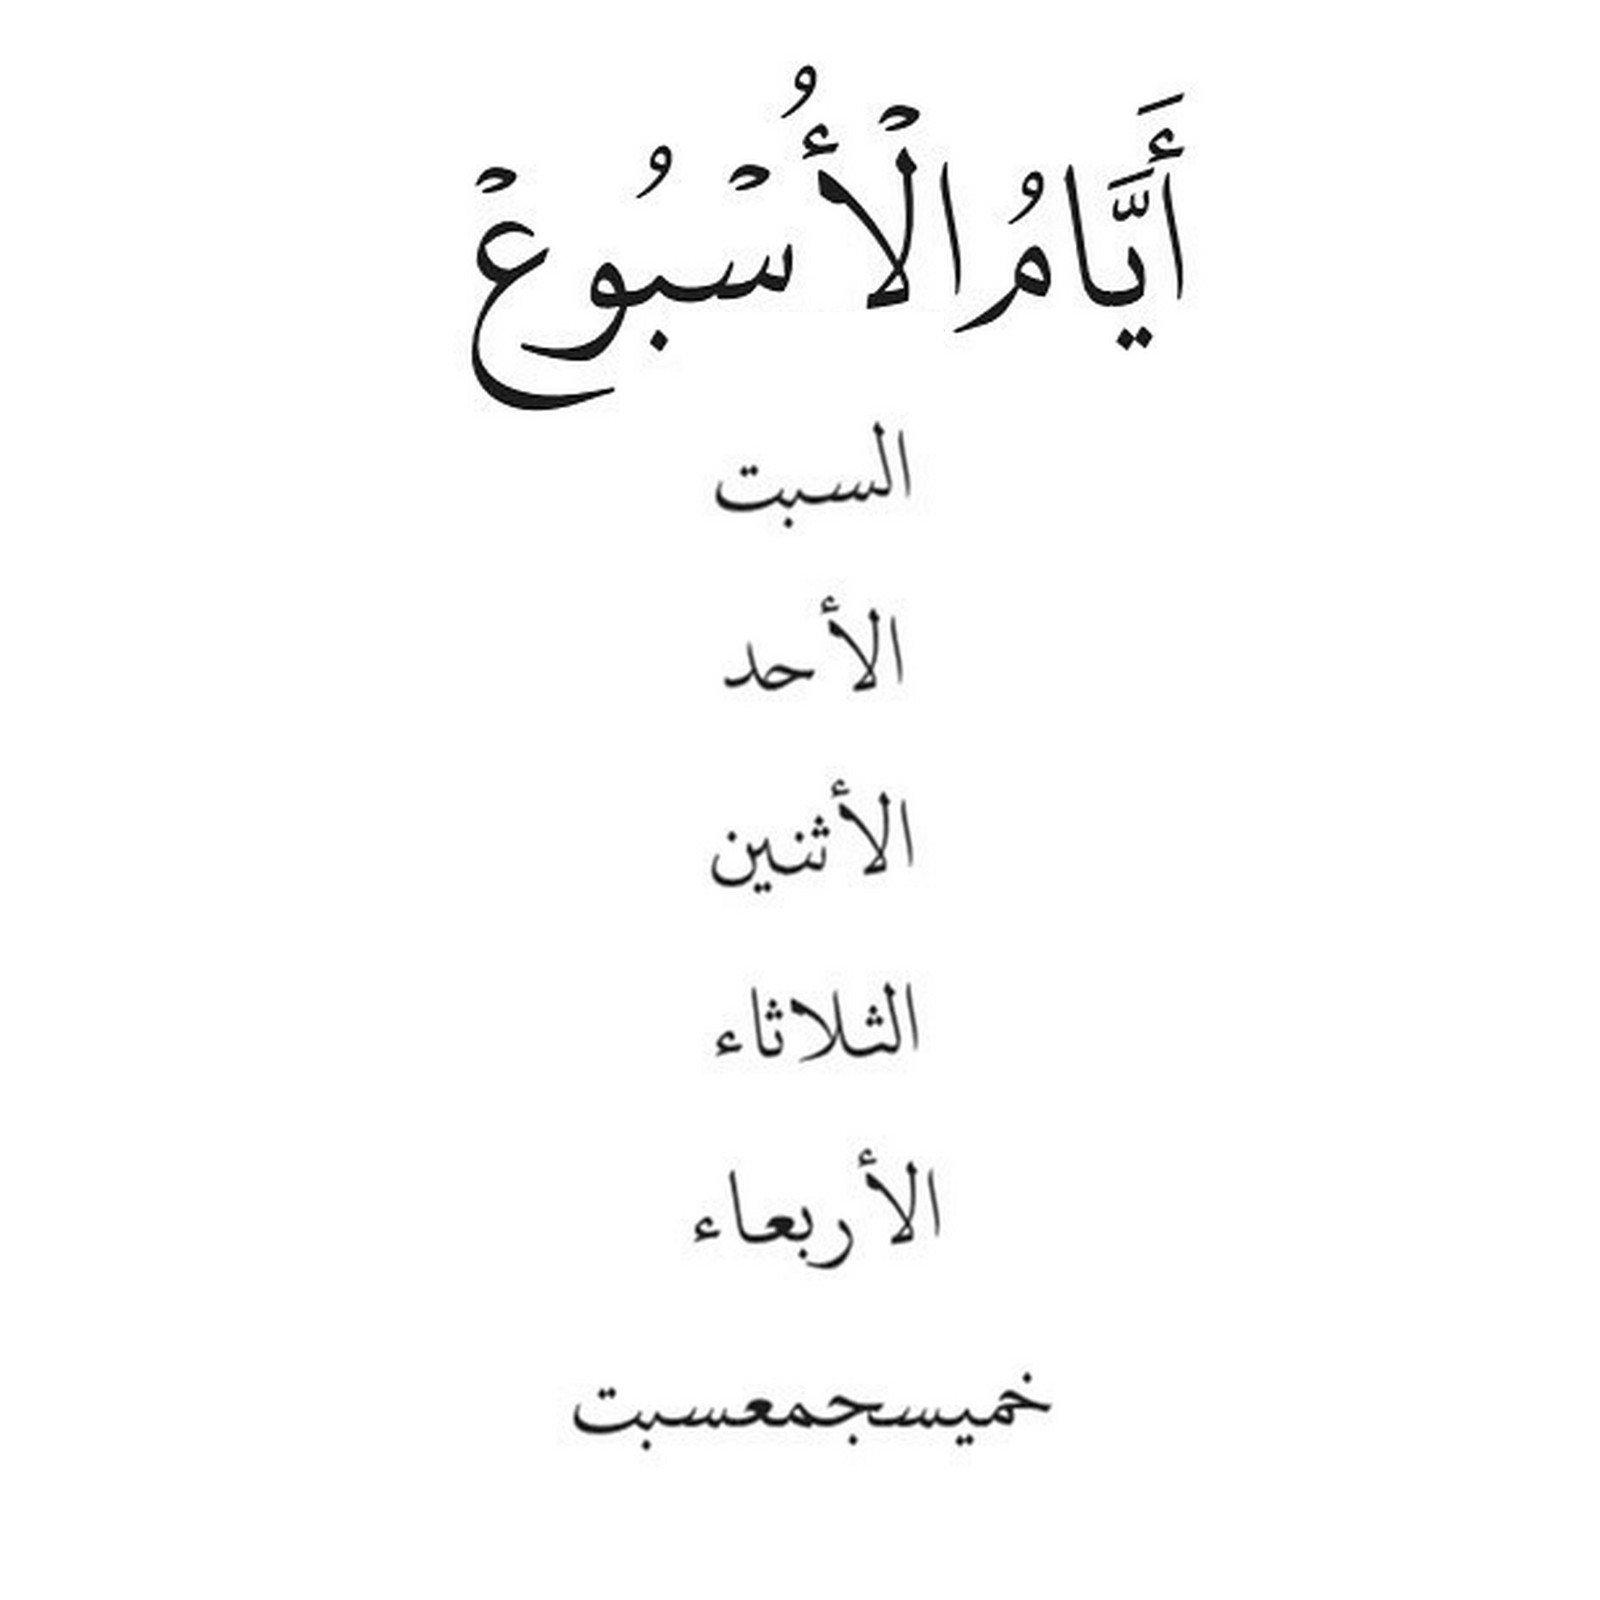 أَيَّامُ الْأُسْبُوعْ
السبت
الأحد
الأثنين
الثلاثاء
الأربعاء
خميسجمعسبت